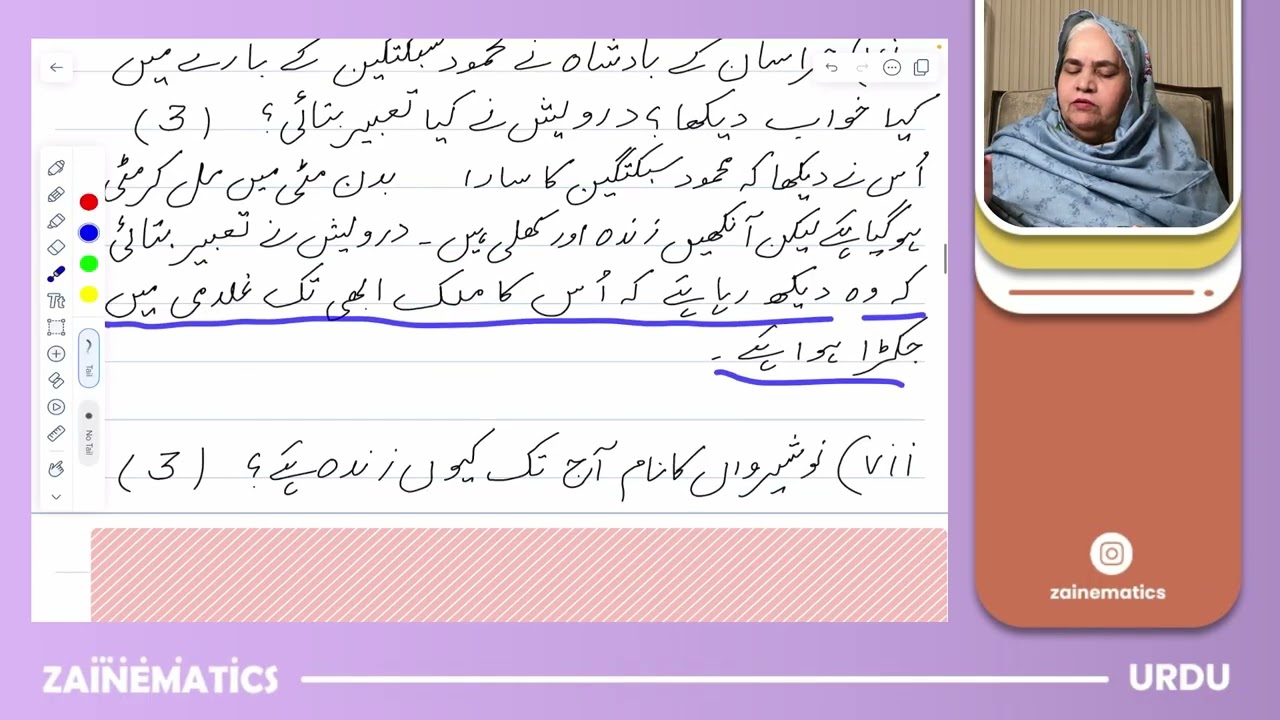 راسان کے بادشاہ نے محمود سبکتگین کے بارے میں
کیا خواب دیکھا؟ درویش نے کیا تعبیر بتائی؟ (3)
اُس نے دیکھا کہ محمود سبکتگین کا سارا بدن مٹی میں مل کر مٹی
ہوگیا ہے لیکن آنکھیں زندہ اور کھلی ہیں۔ درویش نے تعبیر بتائی
کہ وہ دیکھ رہا ہے کہ اُس کا ملک ابھی تک غلامی میں
جکڑا ہوا ہے۔
vii) نوشیرواں کا نام آج تک کیوں زندہ ہے؟ (3)
Tt
Tail
No Tail
zainematics
ZAINEMATICS
URDU